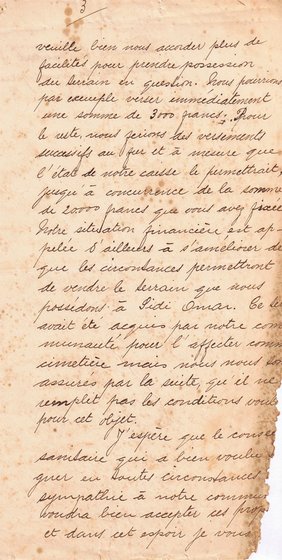 3
veuille bien nous accorder plus de
facilités pour prendre possession
du terrain en question. Nous pourrions
par exemple verser immédiatement
une somme de 3000 francs; Pour
le reste, nous ferions des versements
successifs au fur et à mesure que
l'état de notre caisse le permettrait,
jusqu'à concurrence de la somme
de 20000 francs que vous avez fixée
Notre situation financière est ap-
pelée d'ailleurs à s'améliorer dè
que les circonstances permettront
de vendre le terrain que nous
possédons à Sidi Omar. Ce te
avait été acquis par notre com
munauté pour l'affecter comm
cimetière mais nous nous so
assurés par la suite, qu'il ne
remplit pas les conditions voulu
pour cet objet.
J'espère que le conse
sanitaire qui a bien voulu
quer en toutes circonstances
sympathie à notre commun
voudra bien accepter ces prop
et dans cet espoir je vous